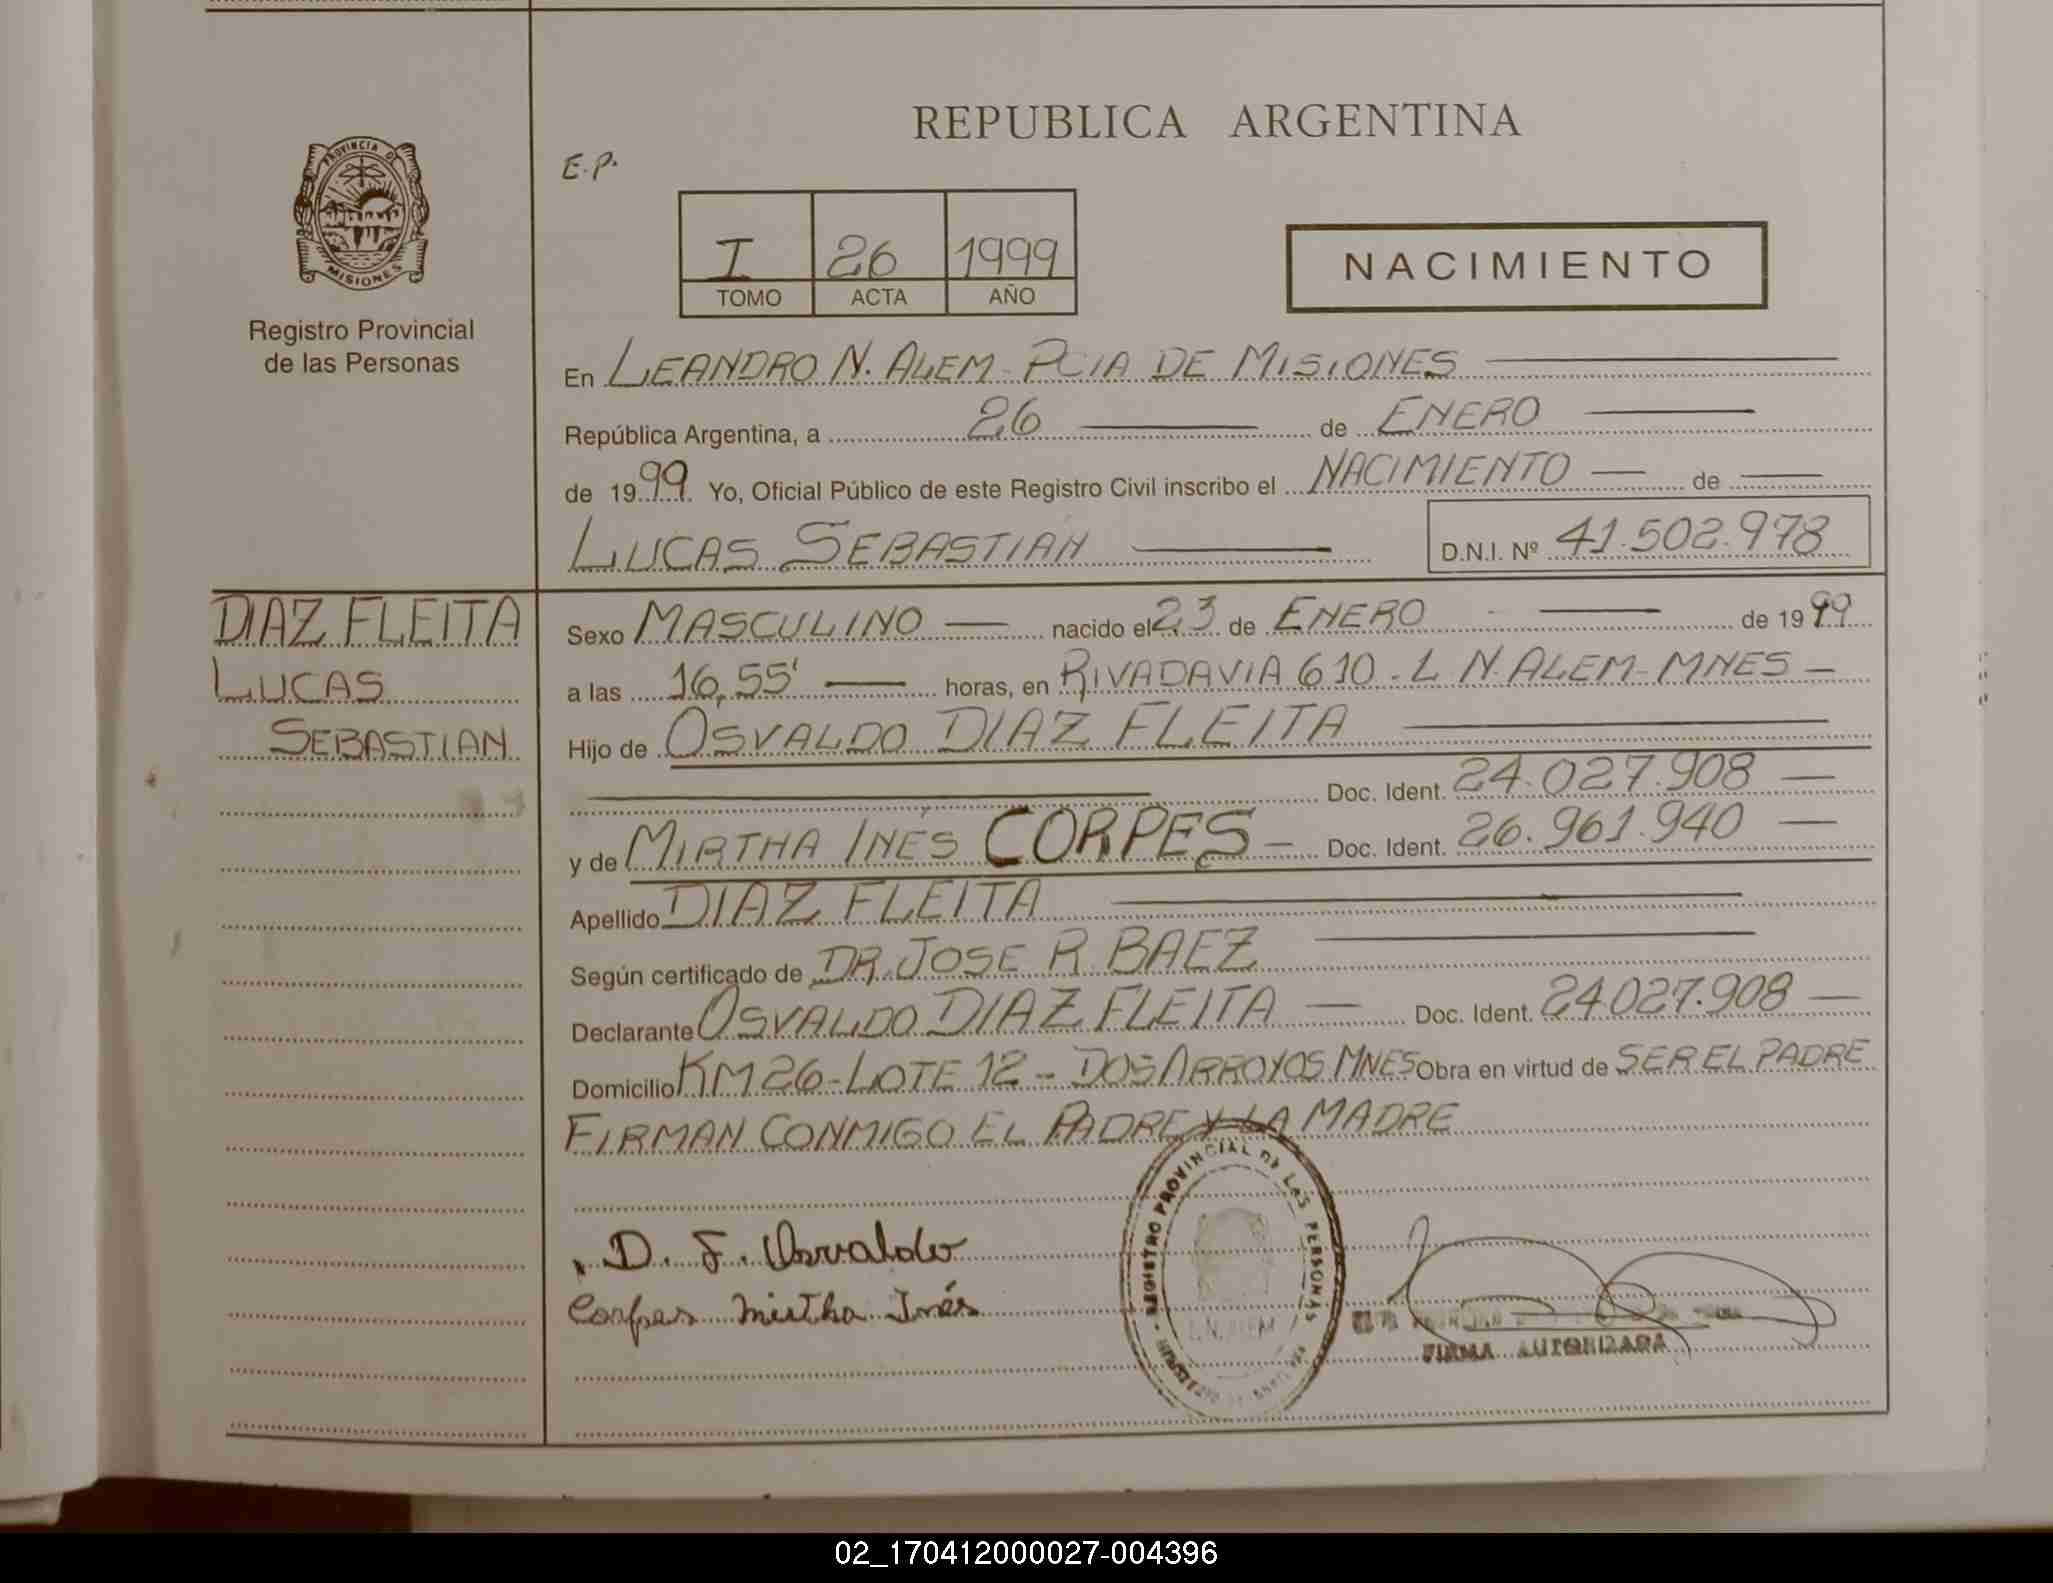 REPUBLICA ARGENTINA
E.P.
PROVINCIA DE
MISIONES
Registro Provincial
de las Personas
I 26 1999
TOMO ACTA AÑO
NACIMIENTO
En LEANDRO N. ALEM - PCIA DE MISIONES
República Argentina, a 26 de ENERO
de 1999. Yo, Oficial Público de este Registro Civil inscribo el NACIMIENTO de
LUCAS SEBASTIAN D.N.I. Nº 41.502.978
DIAZ FLEITA
LUCAS
SEBASTIAN
Sexo MASCULINO nacido el 23 de ENERO de 1999
a las 16,55' horas, en RIVADAVIA 610 - L N. ALEM - MNES -
Hijo de OSVALDO DIAZ FLEITA
Doc. Ident. 24.027.908
y de MIRTHA INÉS CORPES - Doc. Ident. 26.961.940
Apellido DIAZ FLEITA
Según certificado de DR. JOSE R. BAEZ
Declarante OSVALDO DIAZ FLEITA Doc. Ident. 24.027.908
Domicilio KM 26 - LOTE 12 - DOS ARROYOS MNES Obra en virtud de SER EL PADRE
FIRMAN CONMIGO EL PADRE Y LA MADRE
D. F. Osvaldo
Corpes Mirtha Inés
REGISTRO PROVINCIAL DE LAS PERSONAS
L.N. ALEM
FIRMA AUTORIZADA
02_170412000027-004396